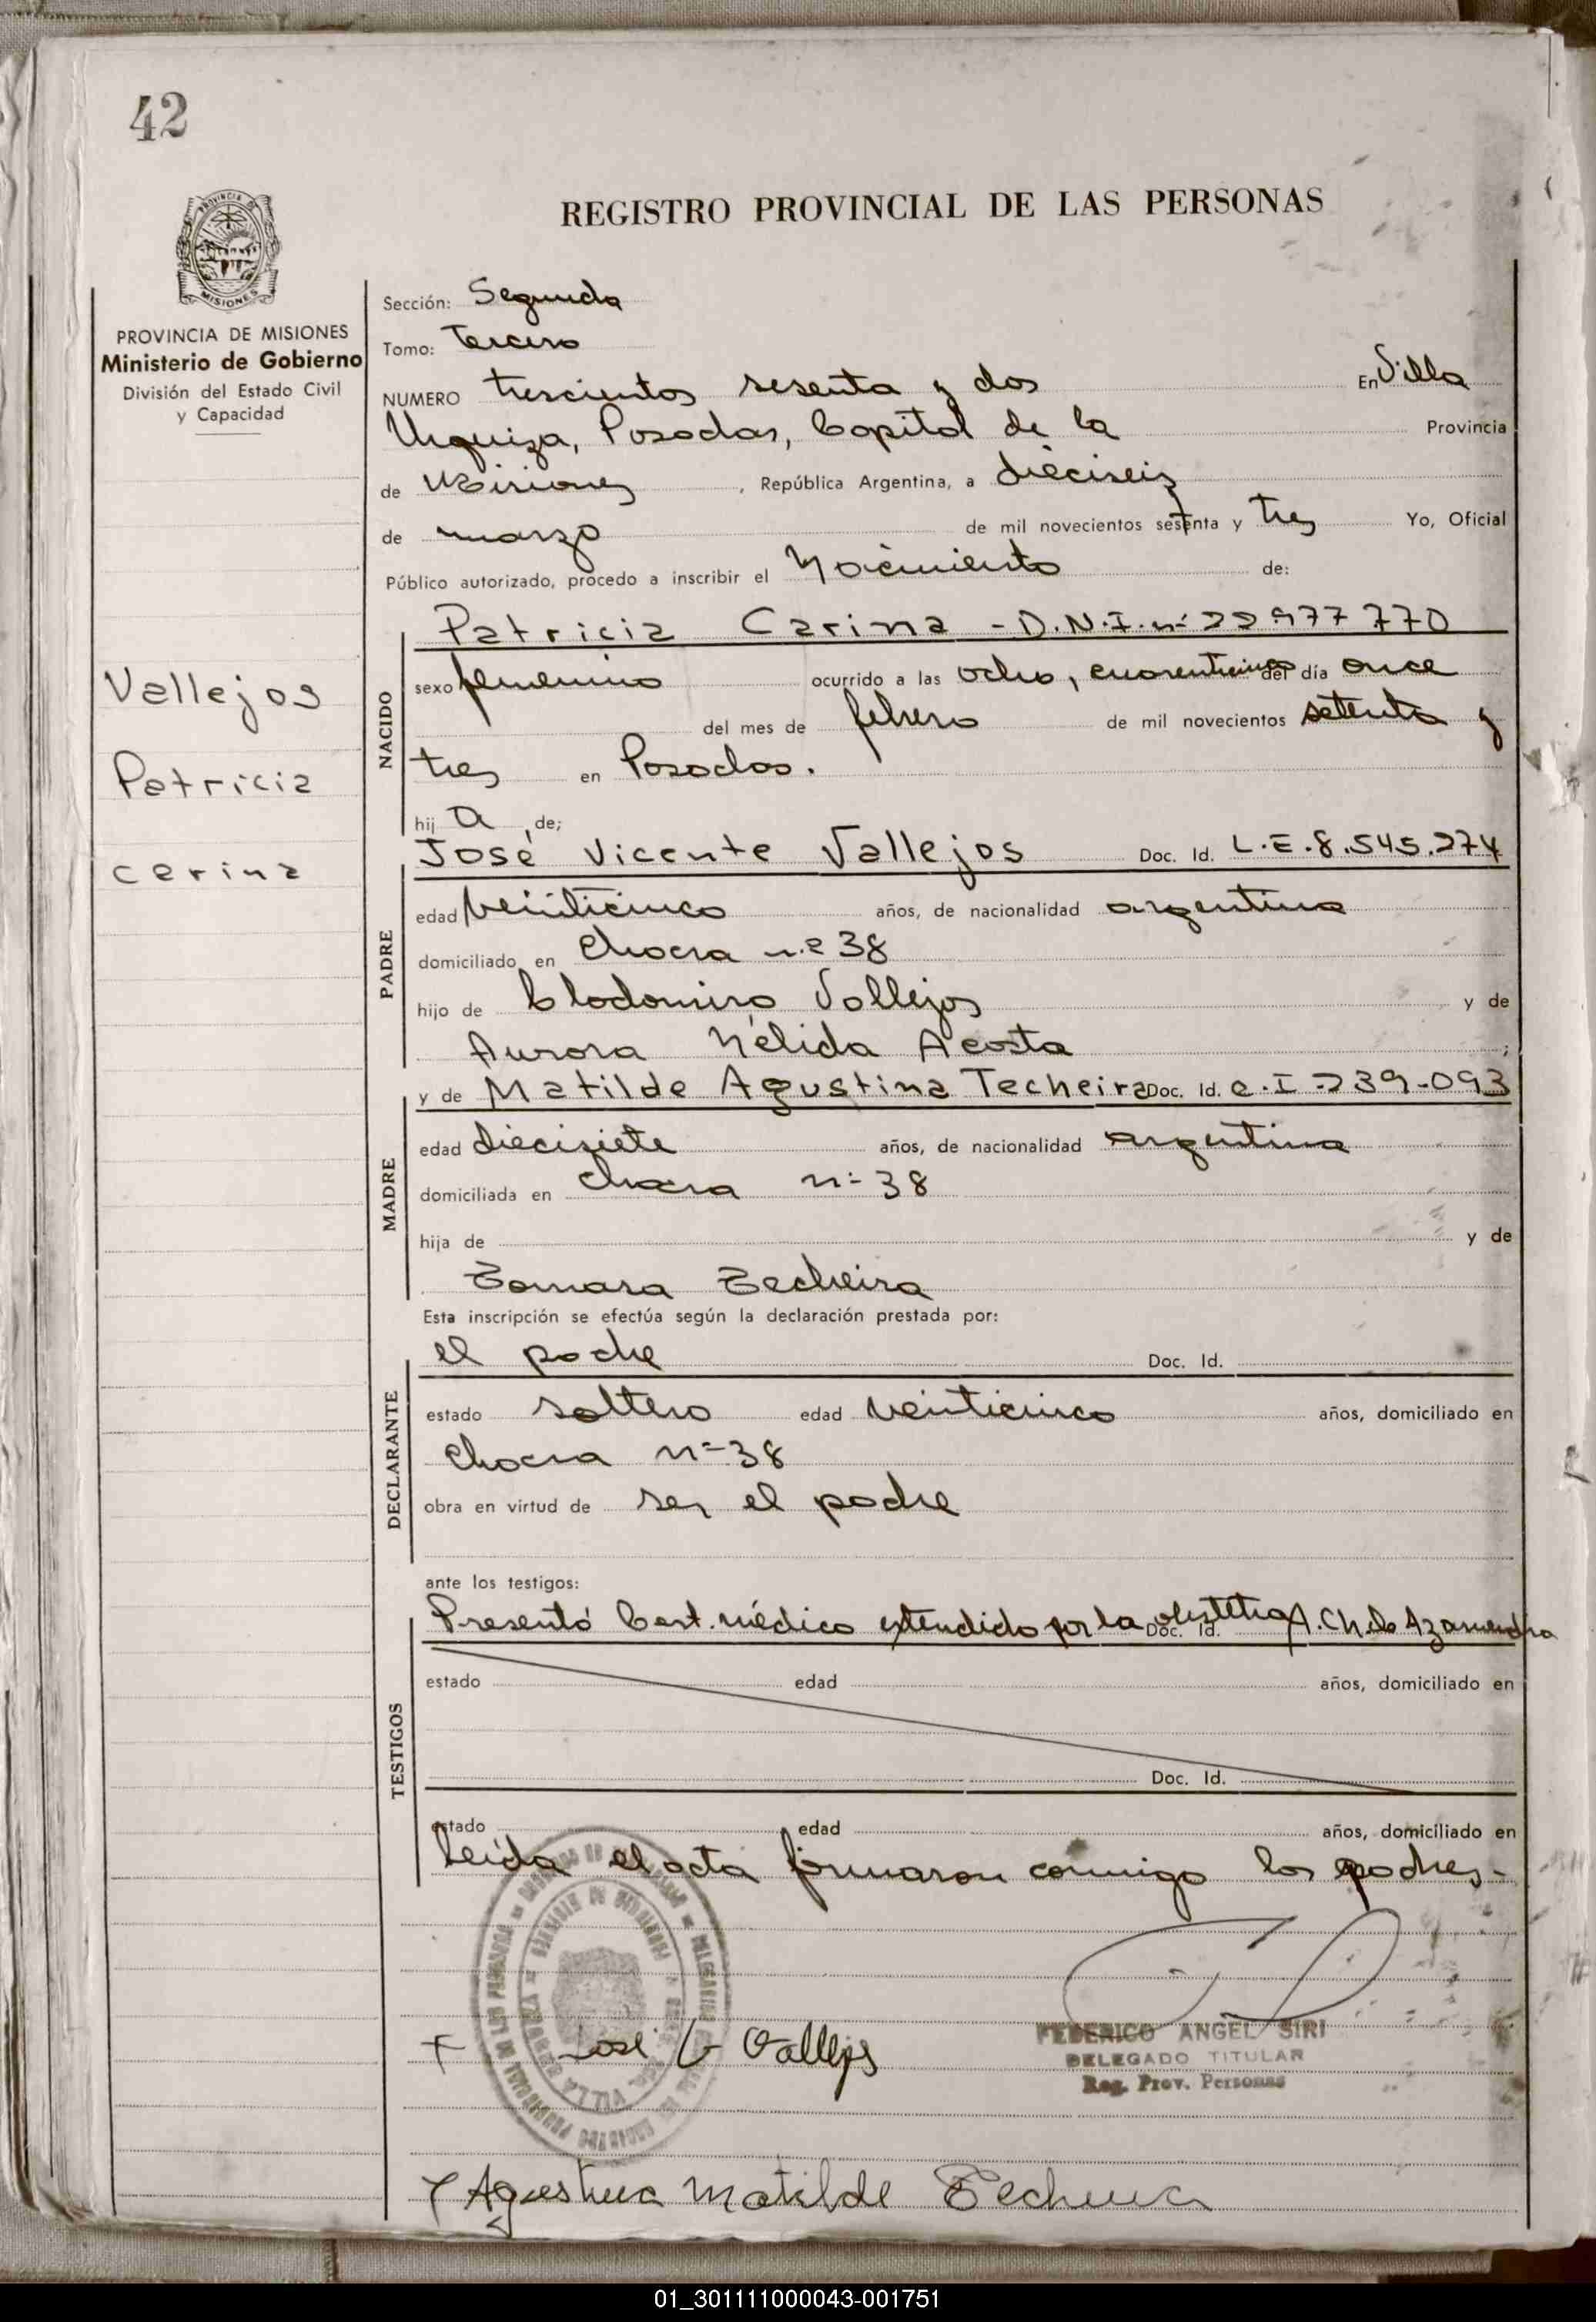 42
REGISTRO PROVINCIAL DE LAS PERSONAS
MISIONES
PROVINCIA DE MISIONES
Ministerio de Gobierno
División del Estado Civil
y Capacidad
Vallejos
Patricia
carina
Sección: Segunda
Tomo: Tercero
NUMERO trescientos sesenta y dos En Villa
Urquiza, Posadas, Capital de la Provincia
de Misiones, República Argentina, a dieciseis
de marzo de mil novecientos setenta y tres Yo, Oficial
Público autorizado, procedo a inscribir el Nacimiento de:
NACIDO
Patricia Carina - D.N.I. nº 22 977 770
sexo femenino ocurrido a las ocho, cuarenticinco del día once
del mes de febrero de mil novecientos setenta y
tres en Posadas.
hij a de;
PADRE
José Vicente Vallejos Doc. Id. L.E. 8.545.274
edad veinticinco años, de nacionalidad argentina
domiciliado en Chacra n.º 38
hijo de Clodomiro Vallejos y de
Aurora Nélida Acosta ;
MADRE
y de Matilde Agustina Techeira Doc. Id. C.I. 239.093
edad diecisiete años, de nacionalidad argentina
domiciliada en Chacra nº 38
hija de y de
Tomasa Techeira
Esta inscripción se efectúa según la declaración prestada por:
DECLARANTE
el padre Doc. Id.
estado soltero edad veinticinco años, domiciliado en
Chacra nº 38
obra en virtud de ser el padre
ante los testigos:
TESTIGOS
Presentó Cert. médico extendido por la obstetra A. Ch. de Azamendia
Doc. Id.
estado edad años, domiciliado en
Doc. Id.
estado edad años, domiciliado en
Leída el acta firmaron conmigo los padres-
José V Vallejos
FEDERICO ANGEL SIRI
DELEGADO TITULAR
Reg. Prov. Personas
Agustina Matilde Techeira
01_301111000043-001751